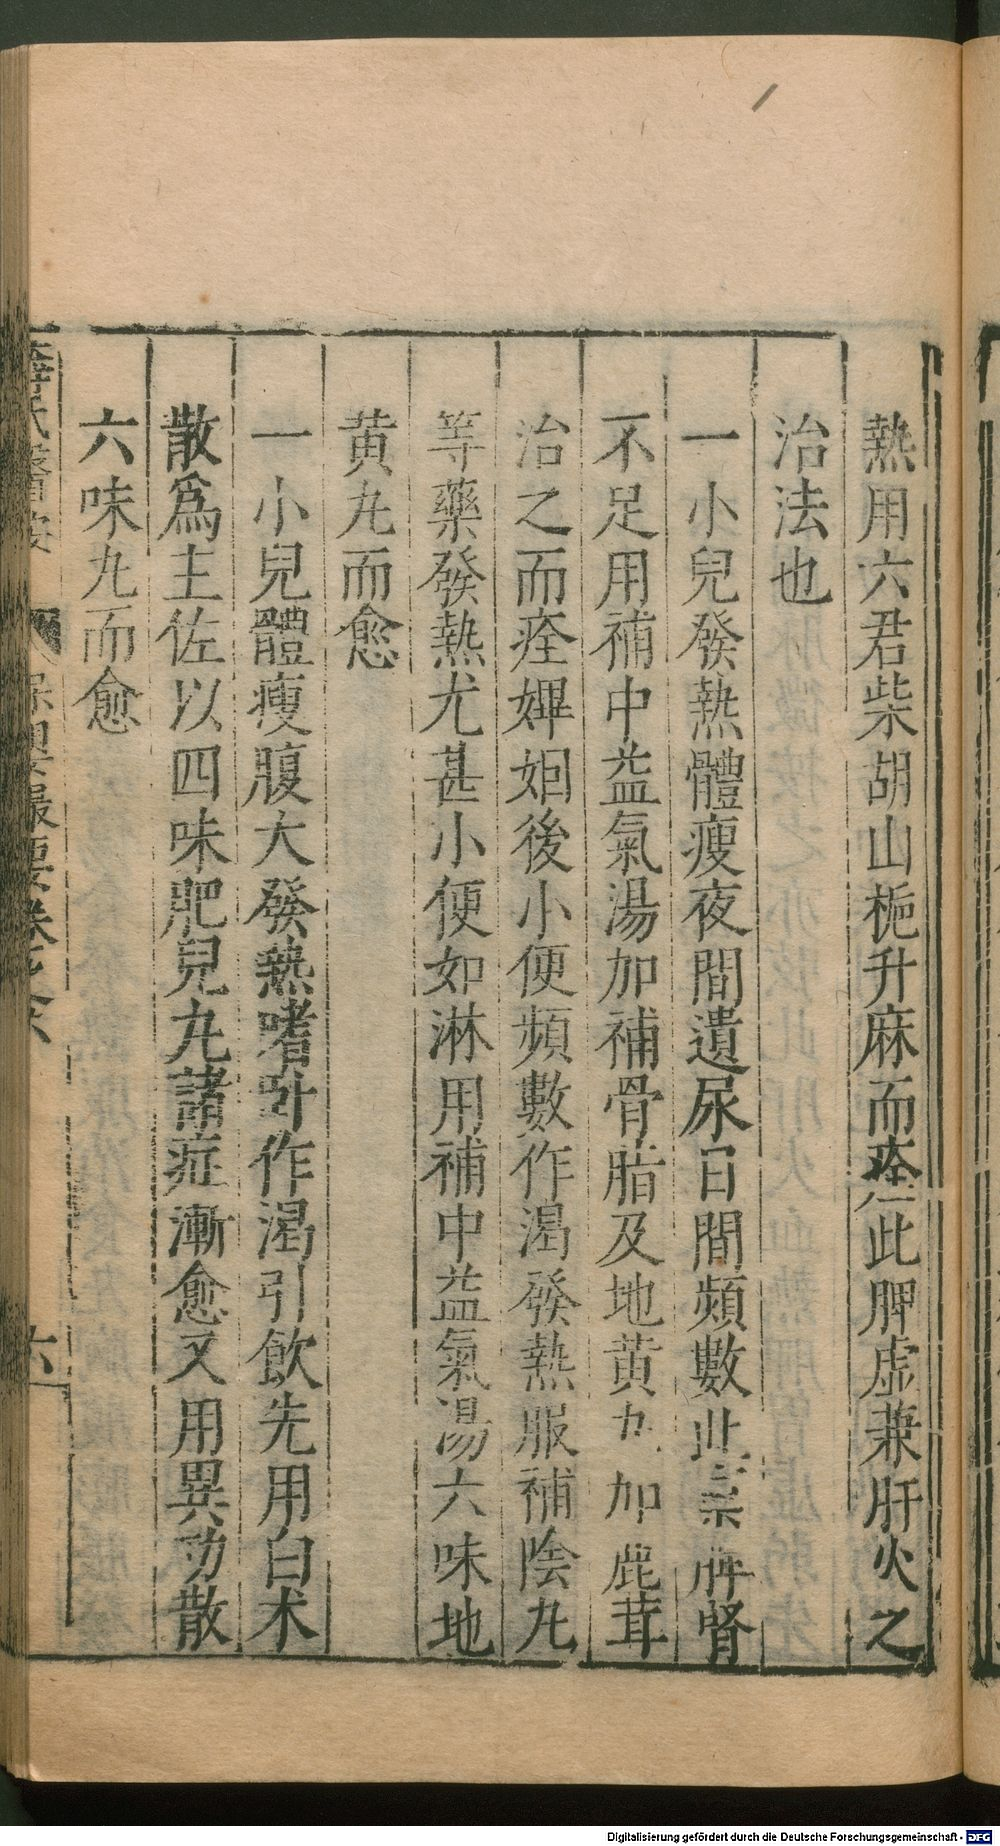 熱用六君柴胡山梔升麻而痊此脾虛兼肝火之
治法也
一小兒發熱體瘦夜間遺尿日間頻數此稟脾腎
不足用補中益氣湯加補骨脂及地黄丸加鹿茸
治之而痊婢妲後小便頻數作渴發熱服補陰丸
等藥發熱尤甚小便如淋用補中益氣湯六味地
黄丸而愈
一小兒體瘦腹大發熱嗜卧作渴引飲先用白术
散爲主佐以四味肥兒丸諸症漸愈又用異功散
六味丸而愈
薛氏醫按 保嬰撮要卷之六 六
Digitalisierung gefördert durch die Deutsche Forschungsgemeinschaft - DFG